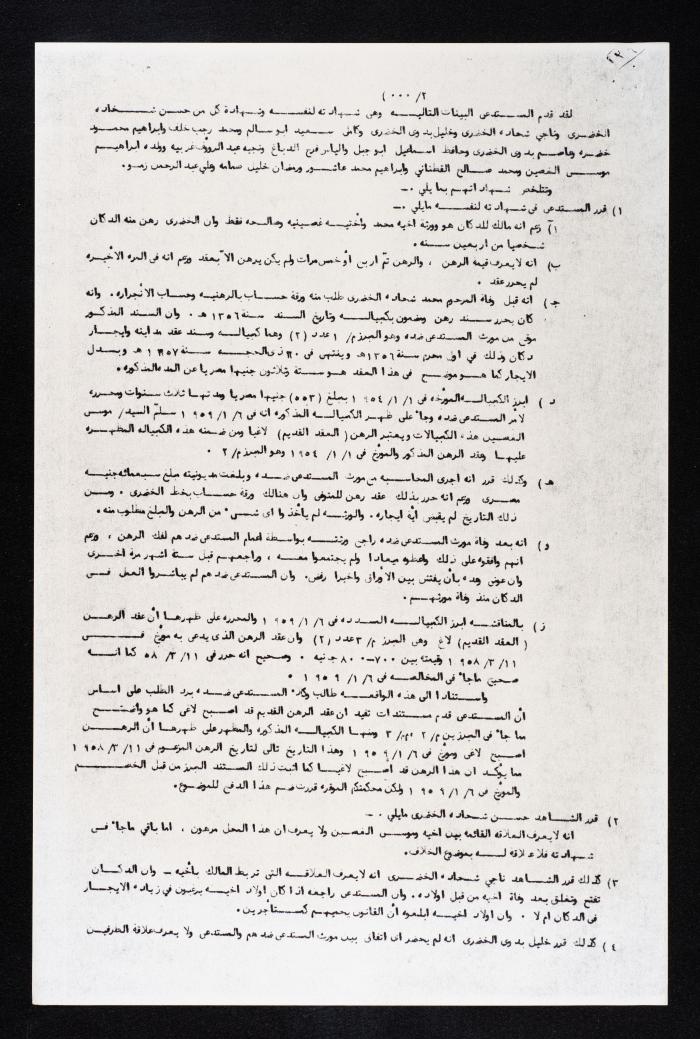 ٢/ ٠٠٠ )
لقد قدم المستدعى البينات التاليه وهى شهادته لنفسه وشهادة كل من حسن شحاده
الخضرى وناجي شحاده الخضرى وخليل بدوى الخضرى وكامل سعيد ابو سالم ومحمد رجب خلف وابراهيم محمود
خضره وعاصم بدوى الخضرى وحافظ اسماعيل ابو جبل والياس فرح الدباغ ونجيه عبد الرؤف غربيه وولده ابراهيم
موسى الغصين ومحمد صالح القطناني وابراهيم محمد عاشور ورمضان خليل صمامه وعلي عبد الرحمن زمو.
وتتلخص شهاداتهم بما يلي :-
١) قرر المستدعى فى شهادته لنفسه مايلي :-
أ) زعم انه مالك للدكان هو وورثة اخيه محمد وأختيه غصينيه وصالحه فقط وان الخضرى رهن منه الدكان
شخصيا من اربعين سنه.
ب) انه لا يعرف قيمة الرهن ، والرهن تمّ اربع أو خمس مرات ولم يكن يرهن الاّ بعقد وزعم انه فى المره الأخيره
لم يحرر عقد .
جـ) انه قبل وفاة المرحوم محمد شحاده الخضرى طلب منه ورقة حساب بالرهنيه وحساب الأنجراره. وانه
كان يحرر سند رهن ومضمون بكمبياله وتاريخ السند سنة ١٣٥٦ هـ . وان السند المذكور
موقع من مورث المستدعى ضده وهو المبرز م/١ عدد (٢) وهما كمبياله وسند عقد مداينه وايجار
دكان وذلك في اول محرم سنة ١٣٥٦هـ وينتهى فى ٣٠ ذى الحجه سنة ١٣٥٧ هـ وبدل
الايجار كما هو موضح فى هذا العقد هو ستة وثلاثون جنيها مصريا عن المده المذكوره.
د ) ابرز الكمبياله المؤرخه فى ١/١/ ١٩٥٤ بمبلغ (٥٥٣) جنيها مصريا ومدتها ثلاث سنوات ومحرره
لأمر المستدعى ضده وجاء على ظهر الكمبياله المذكوره انه فى ١/٦/ ١٩٥٩ سلّم السيد/ موسى
الغصين هذه الكمبيالات ويعتبر الرهن ( العقد القديم) لاغيا ومن ضمنه هذه الكمبياله المظهره
عليها وعقد الرهن المذكور والمؤرخ فى ١/١/ ١٩٥٤ وهو المبرز م/٢ .
هـ) وكذلك قرر انه اجرى المحاسبه مع مورث المستدعى ضده وبلغت مديونيته مبلغ سبعمائه جنيه
مصرى وزعم انه حرر بذلك عقد رهن للمتوفى وان هنالك ورقة حساب بخط الخضرى . ومن
ذلك التاريخ لم يقبض أية ايجاره. والورثه لم يأخذوا اى شىء من الرهن والمبلغ مطلوب منه.
و ) انه بعد وفاة مورث المستدعى ضده راجع ورثته بواسطة اعمام المستدعى ضدهم لفك الرهن ، وزعم
انهم وافقوه على ذلك واعطوه ميعادا ولم يجتمعوا معه ، وراجعهم قبل ستة اشهر مرة اخرى
وان عونى وعده بأن يفتش بين الأوراق واخيرا رفض. وان المستدعى ضدهم لم يباشروا العمل فى
الدكان منذ وفاة مورثهم.
ز ) بالمناقشه ابرز الكمبياله المسدده فى ١/٦/ ١٩٥٩ والمحرره على ظهرها أن عقد الرهن
( العقد القديم) لاغ وهى المبرز م/٣ عدد (٢) وان عقد الرهن الذى يدعى به مؤرخ فى
١١/٣/ ١٩٥٨ وقيمته بين ٧٠٠-٨٠٠ جنيه . وصحيح انه حرر فى ١١/٣/ ٥٨ كما انه
صحيح ماجاء فى المخالصه فى ١/٦/ ١٩٥٩ .
واستنادا الى هذه الواقعه طالب وكلاء المستدعى ضده برد الطلب على اساس
أن المستدعى قدم مستندات تفيد ان عقد الرهن القديم قد اصبح لاغى كما هو واضح
مما جاء فى المبرزين م/٢ ، م/٣ ومنها الكمبياله المذكوره والمظهر على ظهرها أن الرهن
اصبح لاغى ومؤرخ فى ١/٦/ ١٩٥٩ وهذا التاريخ تالى لتاريخ الرهن المزعوم فى ١١/٣/ ١٩٥٨
مما يؤكد ان هذا الرهن قد اصبح لاغيا كما اثبت ذلك المستند المبرز من قبل الخصم
والمؤرخ فى ١/٦/ ١٩٥٩ ولكن محكمتكم الموقره قررت ضم هذا الدفع للموضوع.
٢) قرر الشاهد حسن شحاده الخضرى مايلي :-
انه لا يعرف العلاقه القائمه بين اخيه وموسى الغصين ولا يعرف ان هذا المحل مرهون ، اما باقي ماجاء فى
شهادته فلا علاقة له بموضوع الخلاف.
٣) كذلك قرر الشاهد ناجي شحاده الخضرى انه لا يعرف العلاقه التى تربط المالك بأخيه - وان الدكان
تفتح وتغلق بعد وفاة اخيه من قبل اولاده. وان المستدعى راجعه اذا كان اولاد اخيه يرغبون في زيادة الايجار
فى الدكان ام لا . وان اولاد اخيه ابلغوه أن القانون يحميهم كمستأجرين.
٤) كذلك قرر خليل بدوى الخضرى انه لم يحضر اى اتفاق بين مورث المستدعى ضدهم والمستدعى ولا يعرف علاقة الطرفين